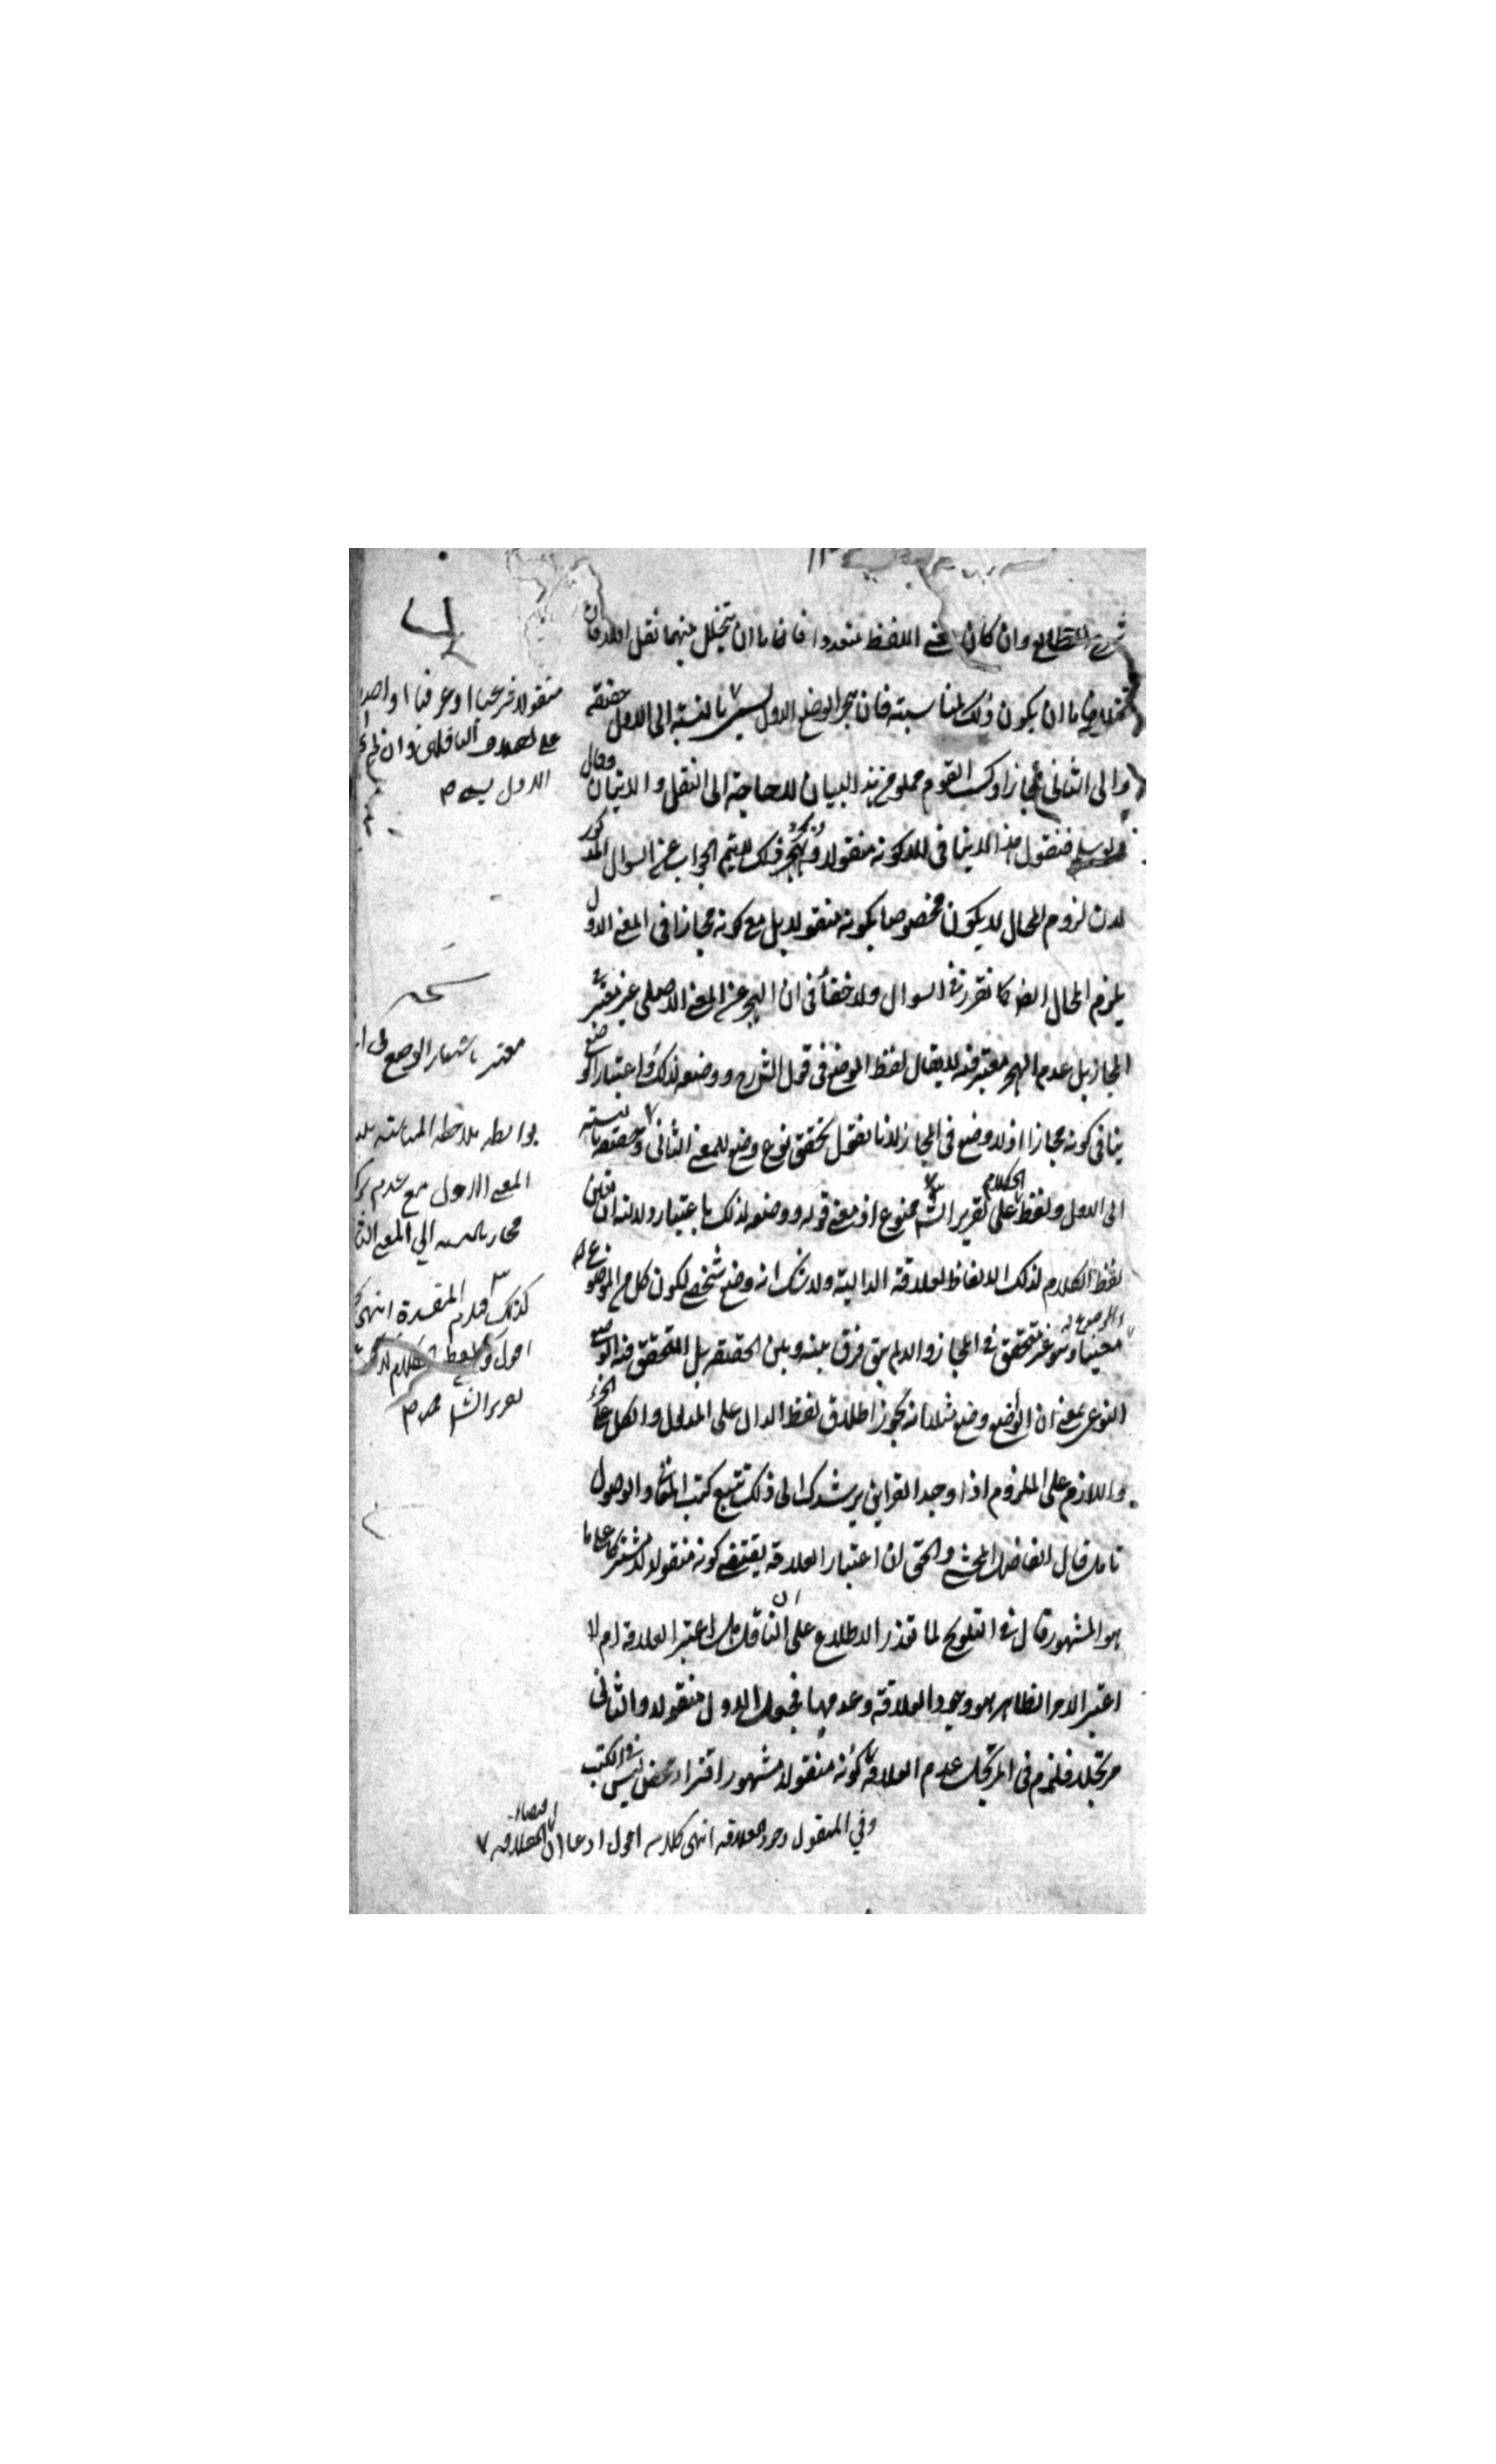 شرح المطالع وان كان معنى اللفظ متعددا فاما ان يتخلل بينهما نقل او لا فان
تخلل فاما ان يكون ذلك لمناسبته فان هجر الوضع الاول يسمى بالنسبة الى الاول حقيقة
والى الثانى مجازا وكتب القوم مملو من هذا البيان لا حاجة الى النقل والاتيان وقال
فنقول هذا لا ينافى للكونه منقولا وهجر ذلك لا يتم الجواب عن السوال المذكور
لان لزوم المحال لا يكون مخصوصا بكونه منقولا بل مع كونه مجازا فى المعنى الاول
يلزم المحال ايضا كما تقرر فى السوال ولا خفأ فى ان الهجر عن المعنى الاصلى غير معتبر فى
المجاز بل عدم الهجر معتبر فيه لا يقال لفظ الوضع فى قول الشرح ووضعه لذلك واعتبار الوضع
ينافى كونه مجازا اذ لا وضع فى المجاز لانا نقول تحقق نوع وضع للمعنى الثانى وحقيقة بالنسبة
الى الاول ولفظ الكلام على تقرير الش ممنوع اذ معنى قوله ووضعه لذلك باعتبار دلالته ان تعين
لفظ الكلام لذلك الالفاظ لعلاقة الدالية ولا شك انه وضع شخصى لكون كل من الموضوع له
والموضوع معينا وهو غير متحقق فى المجاز والا لم يبق فرق بينه وبين الحقيقة بل المتحقق فيه الوضع
النوعى بمعنى ان الواضع وضع مثلا انه يجوز اطلاق لفظ الدال على المدلول والكل على الجزء
واللازم على الملزوم اذا وجد القراين يرشدك الى ذلك تتبع كتب المعانى والاصول
تامل قال الفاضل المحشى والحق ان اعتبار العلاقة يقتضى كونه منقولا لا مشتركا على ما
هو المشهور قال فى التلويح لما تعذر الاطلاع على ان الناقل هل اعتبر العلاقة ام لا
اعتبر الامر الظاهر هو وجود العلاقة وعدمها فجعل الاول منقولا والثانى
مرتجلا فلزم فى المرتجل عدم العلاقة كونه منقولا مشهور افتراء محض ليس فى الكتب
وفي المنقول وجود العلاقة انتهى كلامه اقول ادعا ان العلاقة
منقولا شرعيا او عرفيا او اصط
على اختلاف الناقلين وان لم
الاول يسمى
نسخه
معتبر باشعار الوضع فى
بواسطة ملاحظة المناسبة
المعنى الاول مع عدم
مجاز بالنسبة الي المعنى
كذلك المقدرة انتهى
اقول ولفظ الكلام
تقرير الش